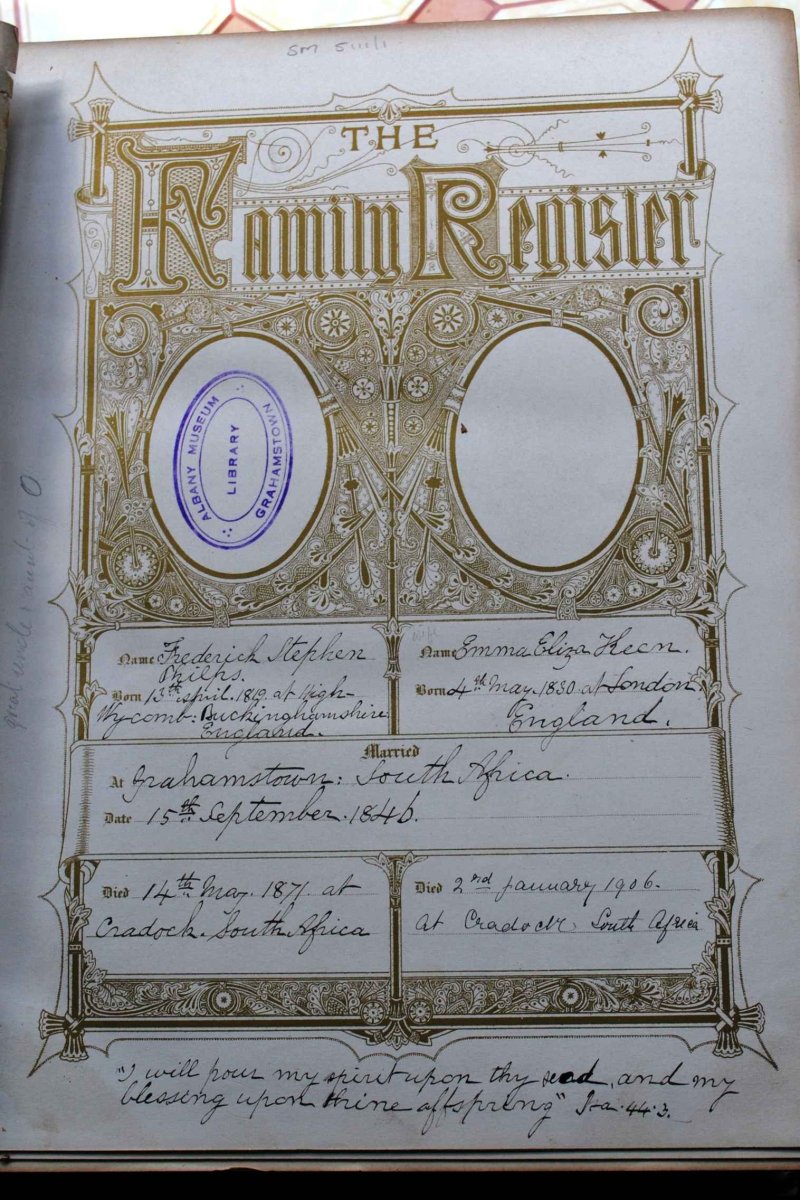 SM 5111/1.
THE
Family Register
ALBANY MUSEUM
LIBRARY
GRAHAMSTOWN
great uncle & aunt of O
wife
Name Frederick Stephen
Philps.
Born 13th April. 1819. at High-
Wycomb: Buckinghamshire
England.
Name Emma Eliza Keen.
Born 4th May. 1830 at London
England.
Married
At Grahamstown: South Africa.
Date 15th September. 1846.
Died 14th May. 1871. at
Cradock. South Africa
Died 2nd January 1906.
at Cradock, South Africa
"I will pour my spirit upon thy seed, and my
blessing upon thine offspring" Isa. 44.3.